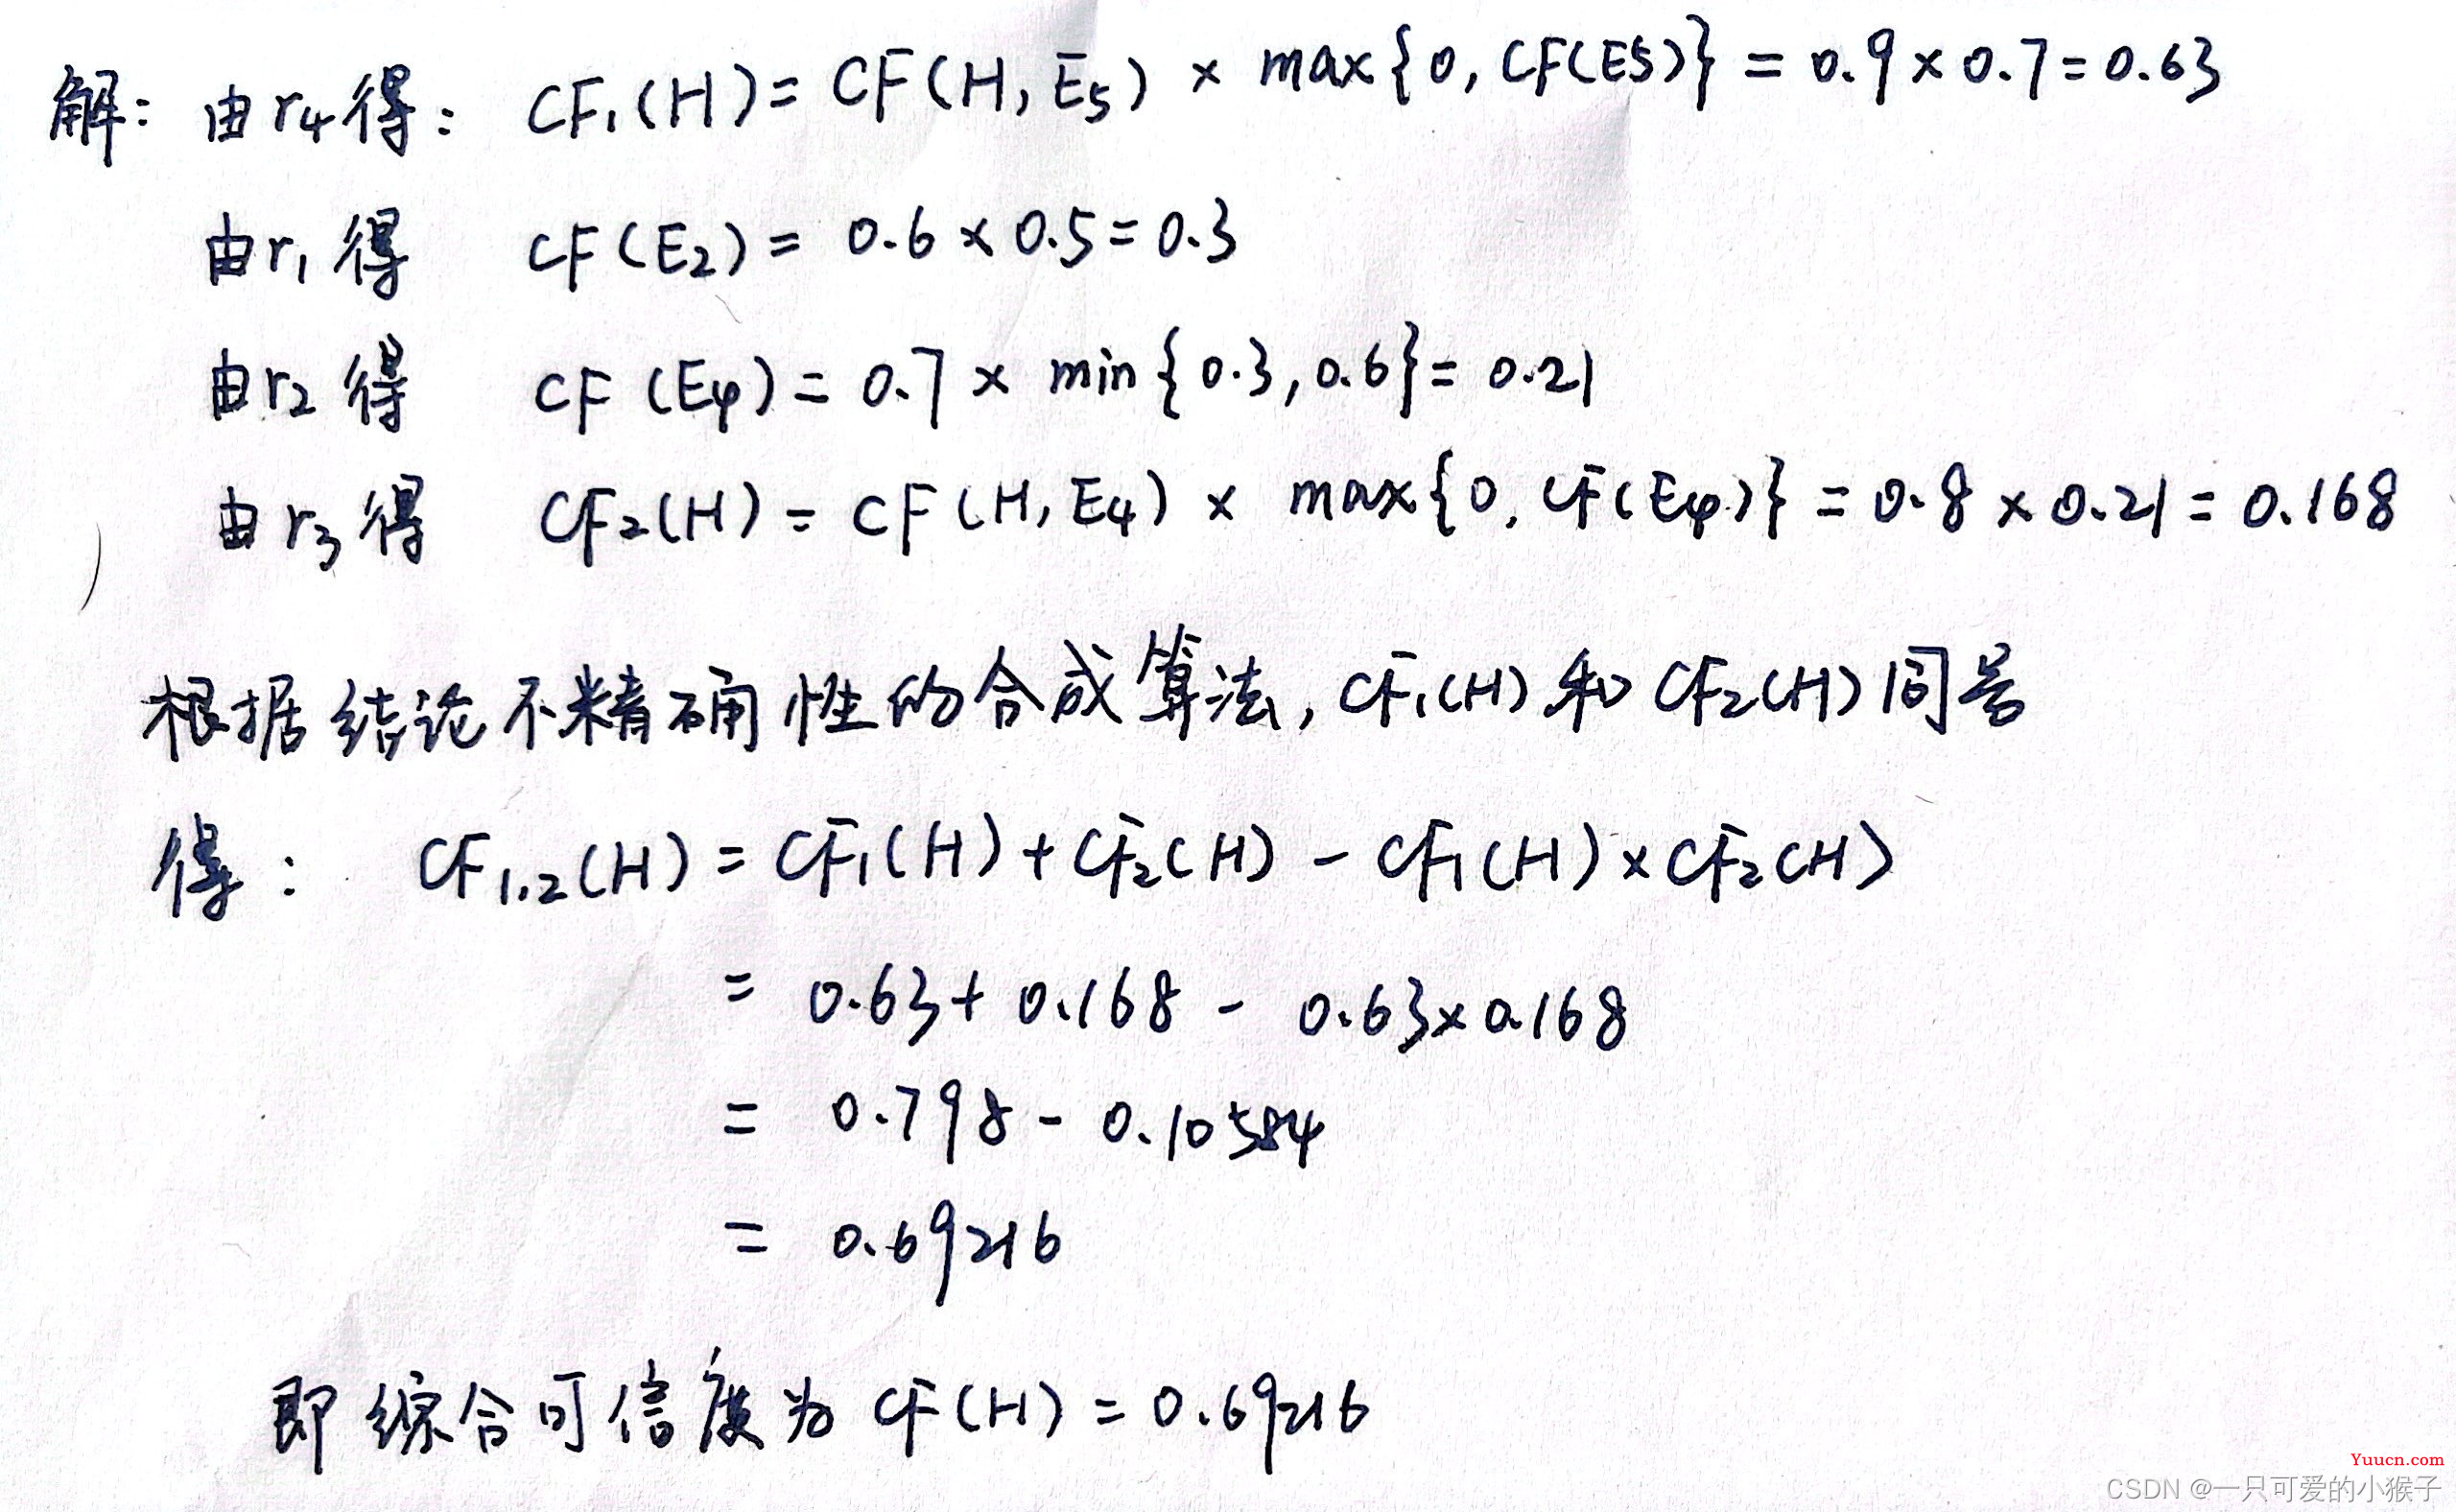 解: 由r₄得: CF₁(H)= CF(H, E₅) × max{0, CF(E5)} = 0.9×0.7=0.63
由r₁得 CF(E₂)= 0.6×0.5=0.3
由r₂得 CF(E₄)= 0.7× min{0.3, 0.6}= 0.21
由r₃得 CF₂(H)= CF(H, E₄) × max{0, CF(E₄)} = 0.8×0.21=0.168
根据结论不精确性的合成算法, CF₁(H)和CF₂(H)同号
得: CF₁.₂(H) = CF₁(H)+CF₂(H) - CF₁(H)×CF₂(H)
= 0.63+0.168 - 0.63×0.168
= 0.798 - 0.10584
= 0.69216
即综合可信度为CF(H)=0.69216
Yuucn.com
CSDN @一只可爱的小猴子